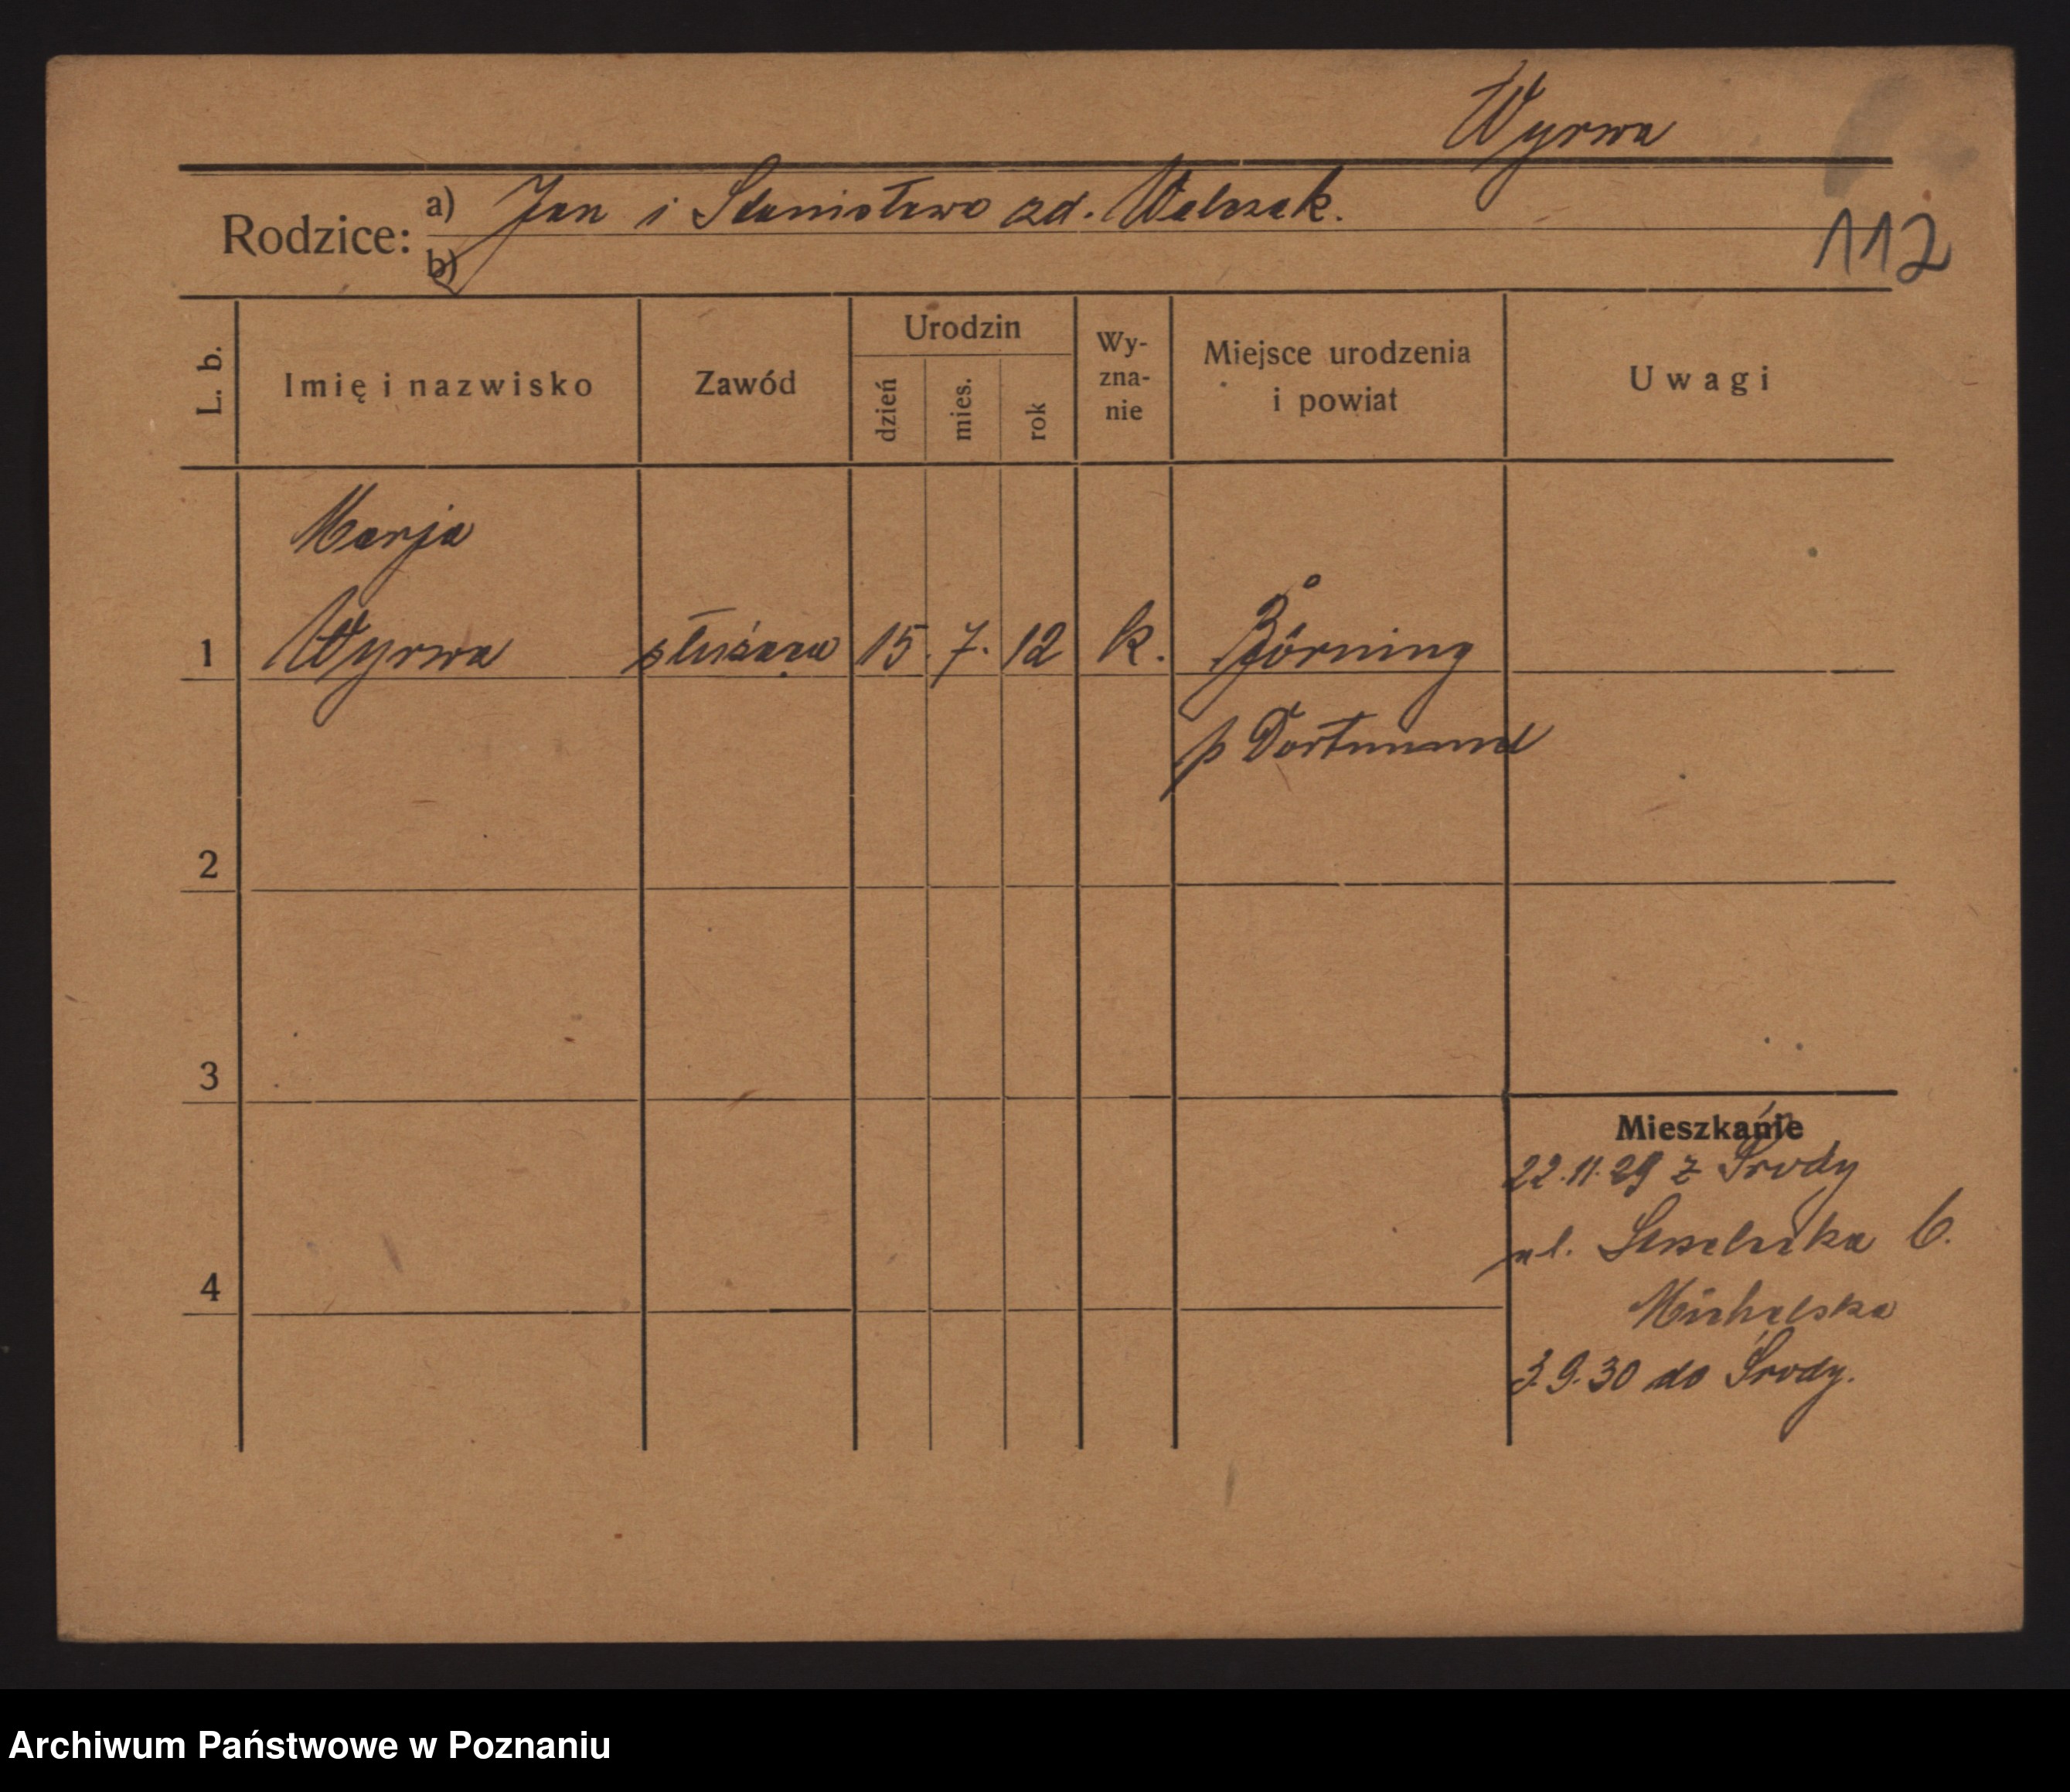 Wyrwa
Rodzice: a) Jan i Stanisława zd. Walczak.
b)
112
L. b.
Imię i nazwisko
Zawód
Urodzin
dzień
mies.
rok
Wy-
zna-
nie
Miejsce urodzenia
i powiat
Uwagi
Marja
1 Wyrwa służąca 15. 7. 12 k.
p Dortmund
2
3
4
Mieszkanie
22.11.29 z Środy
ul. 6.
Michalska
3.9.30 do Środy.
Archiwum Państwowe w Poznaniu